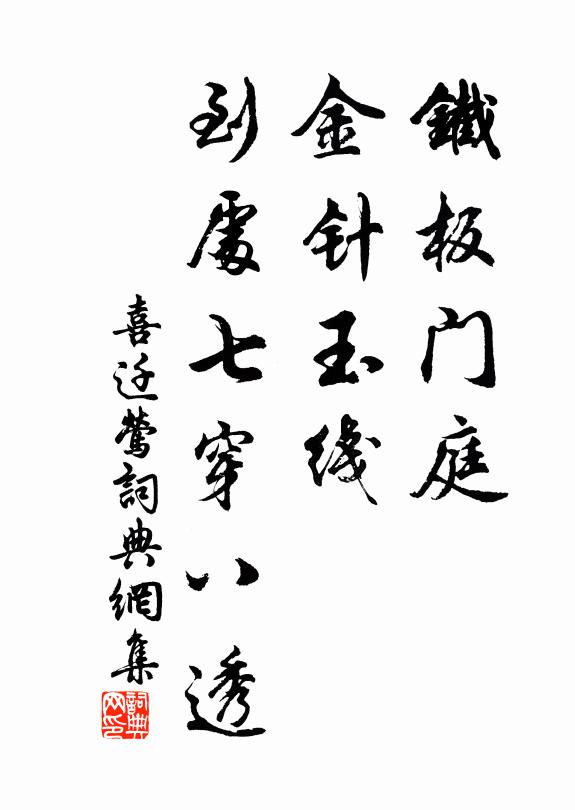 鐵板门庭
金针玉线
到處七穿八透
喜迁莺詞典網集
詞典
网印